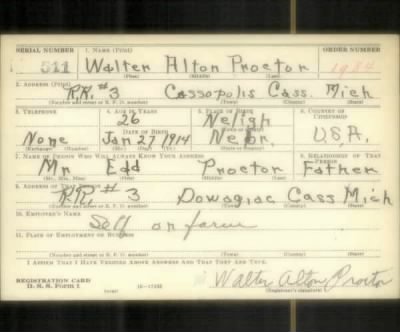 SERIAL NUMBER 1. NAME (Print) ORDER NUMBER
511 Walter Alton Proctor
(First) (Middle) (Last)
2. ADDRESS (Print)
R.R. #3 Cassopolis Cass. Mich
(Number and street or R. F. D. number) (Town) (County) (State)
3. TELEPHONE 4. AGE IN YEARS 5. PLACE OF BIRTH 6. COUNTRY OF CITIZENSHIP
26 Neligh
DATE OF BIRTH (Town or county)
None Jan 27 1914 Nebr. U.S.A.
(Exchange) (Number) (Mo.) (Day) (Yr.) (State or country)
7. NAME OF PERSON WHO WILL ALWAYS KNOW YOUR ADDRESS 8. RELATIONSHIP OF THAT PERSON
Mr Edd Proctor Father
(Mr., Mrs., Miss) (First) (Middle) (Last)
9. ADDRESS OF THAT PERSON
R.R. # 3 Dowagiac Cass Mich
(Number and street or R. F. D. number) (Town) (County) (State)
10. EMPLOYER'S NAME
Self on farm
11. PLACE OF EMPLOYMENT OR BUSINESS
(Number and street or R. F. D. number) (Town) (County) (State)
I AFFIRM THAT I HAVE VERIFIED ABOVE ANSWERS AND THAT THEY ARE TRUE.
REGISTRATION CARD
D. S. S. Form 1 Walter Alton Proctor
(Registrant's signature)